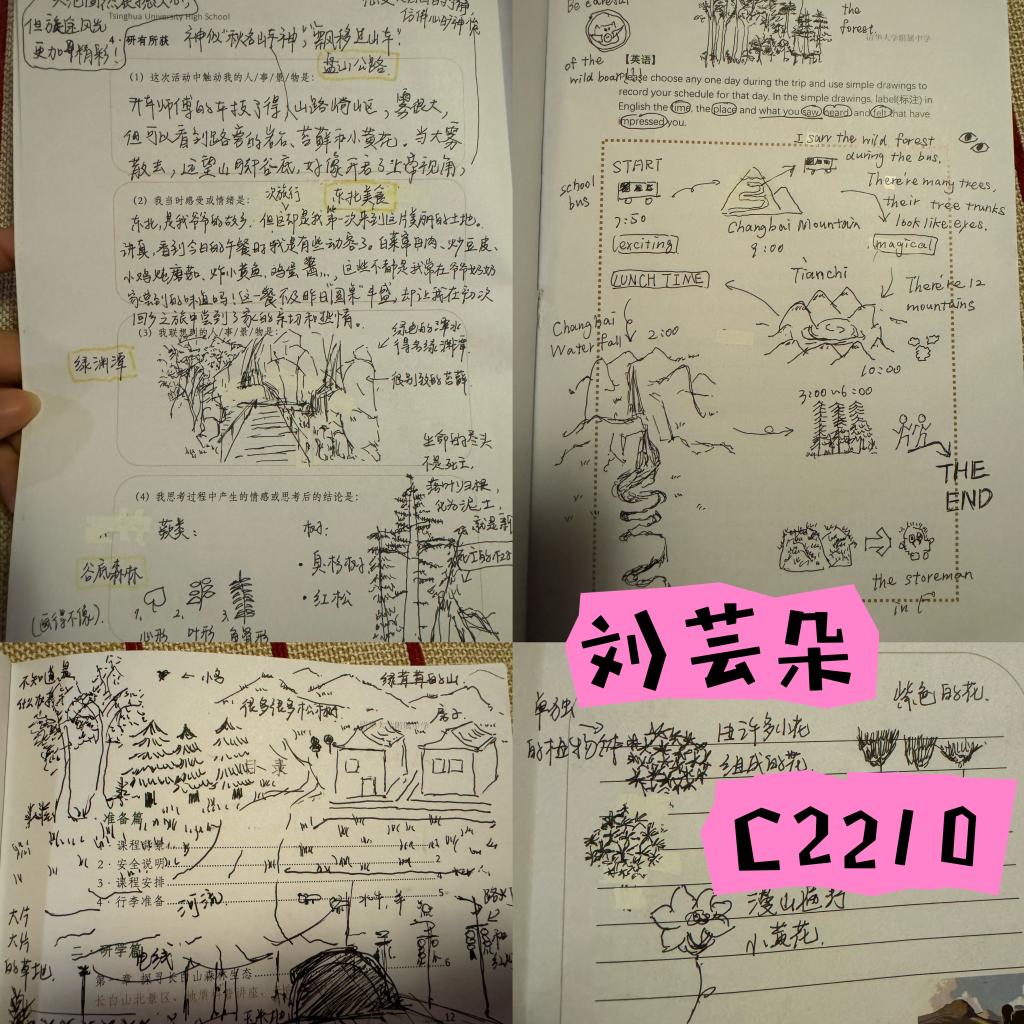 但旅途风光
更加精彩！
Tsinghua University High School
4·研有所获 神似"秋名山车神"，"飘移过山车"！
(1) 这次活动中触动我的人/事/景/物是：
盘山公路
开车师傅的车技了得，山路崎岖，雾很大，
但可以看到路旁的岩石、苔藓和小黄花。当大雾
散去，远望山间谷底，好像开启了上帝视角，
(2) 我当时感受或情绪是：
次旅行
东北美食
东北，是我爷爷的故乡，但这却是我第一次来到这片美丽的土地。
讲真，看到今日的午餐时我是有些动容了。白菜汆白肉、炒豆皮、
小鸡炖蘑菇、炸小黄鱼、鸡蛋酱……，这些不都是我常在爷爷奶奶
家尝到的味道吗！这一餐不及昨日"圆桌"丰盛，却让我在初次
回乡之旅中尝到了家的亲切和热情。
(3) 我联想到的人/事/景/物是：
绿渊潭
绿色的潭水
得名绿渊潭
很别致的苔藓
(4) 我思考过程中产生的情感或思考后的结论是：
生命的尽头
不是死亡，
落叶归根，
化为泥土，
谷底森林
蕨类：
树：
·臭松树
·红松
1. 2. 3.
(画得不像)
心形 叶形 鱼骨形
Be careful
of the
wild boar!
the
forest.
清华大学附属中学
【英语】
Please choose any one day during the trip and use simple drawings to
record your schedule for that day. In the simple drawings, label(标注) in
English the time, the place and what you saw, heard and felt that have
impressed you.
I saw the wild forest
during the bus.
START
school
bus
7:50
exciting
Changbai Mountain
9:00
There're many trees,
their tree trunks
look like eyes.
magical
LUNCH TIME
Tianchi
There're 12
mountains
10:00
Changbai
Waterfall
2:00
3:00~6:00
THE
END
the storeman
in
刘芸朵
不知道是
什么树
小鸟
绿茸茸的山
很多很多松树
房子
准备篇
1·课程
2·安全说明 2
3·课程安排 4
4·行李准备 5
河流
水牛，羊
大片
大片
的草地
二·研学篇
电线
第一章 探寻长白山森林生态 6
长白山北景区、地质 讲座、
玉米地
12
单独
的植物
由许多小花
组成的花
紫色的花
C2210
漫山遍野
小黄花